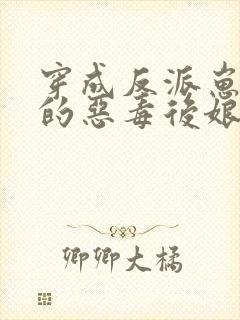 穿成反派崽
的惡毒後娘
卿卿大橘